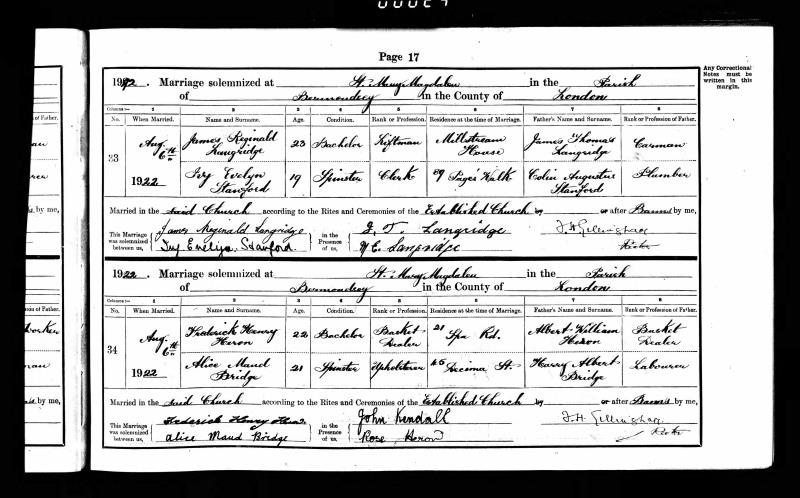 Page 17
Any Correctional Notes must be written in this margin.
1922. Marriage solemnized at St. Mary Magdalen in the Parish
of Bermondsey in the County of London
Columns:— 1 2 3 4 5 6 7 8
No. When Married. Name and Surname. Age. Condition. Rank or Profession. Residence at the time of Marriage. Father's Name and Surname. Rank or Profession of Father.
33 Aug. 6th 1922 James Reginald Langridge 23 Bachelor Liftman Millstream House James Thomas Langridge Carman
Ivy Evelyn Stanford 19 Spinster Clerk 89 Pages Walk Colin Augustus Stanford Plumber
Married in the said Church according to the Rites and Ceremonies of the Established Church by or after Banns by me,
This Marriage was solemnized between us, James Reginald Langridge in the Presence of us, J. T. Langridge J. H. Gillingham
Ivy Evelyn Stanford. E. Langridge Rector
1922. Marriage solemnized at St. Mary Magdalen in the Parish
of Bermondsey in the County of London
Columns:— 1 2 3 4 5 6 7 8
No. When Married. Name and Surname. Age. Condition. Rank or Profession. Residence at the time of Marriage. Father's Name and Surname. Rank or Profession of Father.
34 Aug. 6th 1922 Frederick Henry Heron 22 Bachelor Basket Dealer 21 Spa Rd. Albert William Heron Basket Dealer
Alice Maud Bridge 21 Spinster Upholsterer 45 Decima St. Harry Albert Bridge Labourer
Married in the said Church according to the Rites and Ceremonies of the Established Church by or after Banns by me,
This Marriage was solemnized between us, Frederick Henry Heron in the Presence of us, John Kendall J. H. Gillingham
Alice Maud Bridge Rose Heron Rector